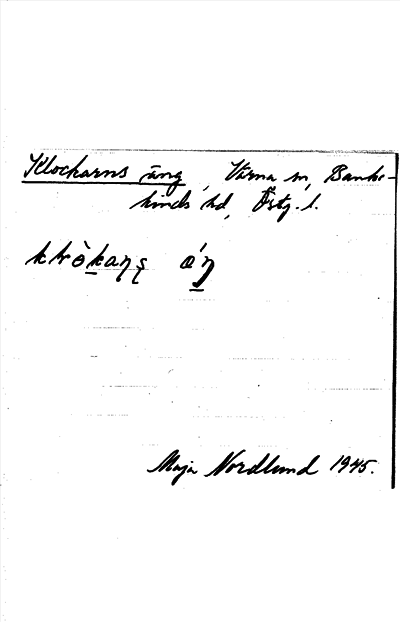 Klockarns äng, Värna sn, Banke-
kinds hd, Östg. l.
Maja Nordlund 1945.